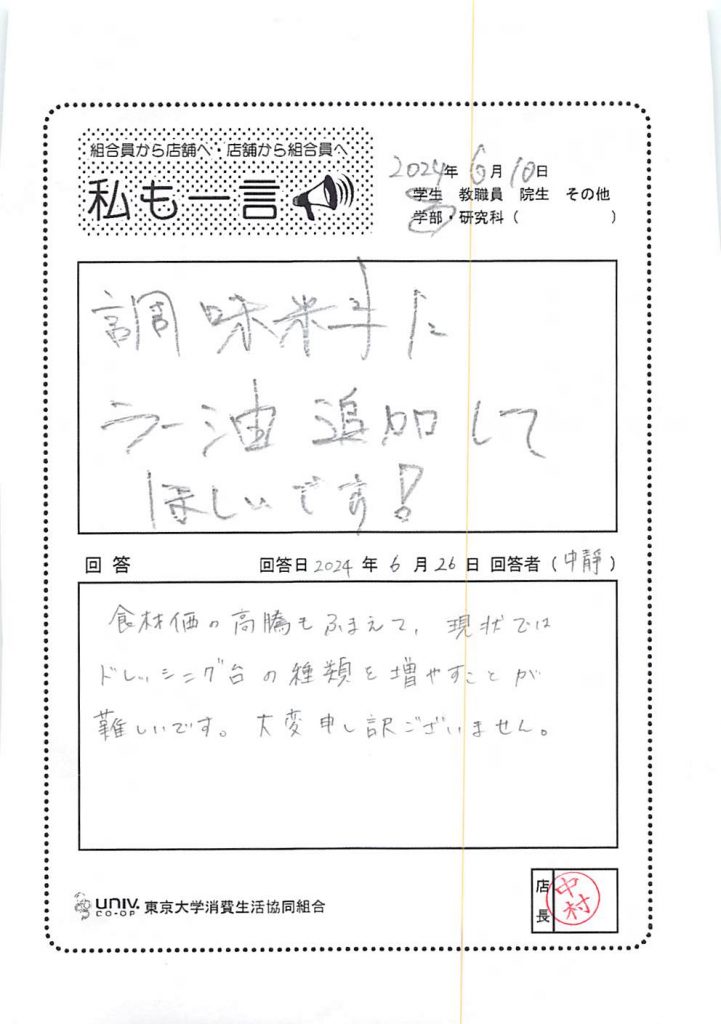 組合員から店舗へ・店舗から組合員へ
私も一言
2024年 6月 10日
学生 教職員 院生 その他
学部・研究科( )
調味料に
ラー油 追加して
ほしいです!
回答 回答日 2024 年 6 月 26 日 回答者(中静)
食材価の高騰もふまえて、現状では
ドレッシング台の種類を増やすことが
難しいです。大変申し訳ございません。
UNIV. CO-OP 東京大学消費生活協同組合
店長 中村